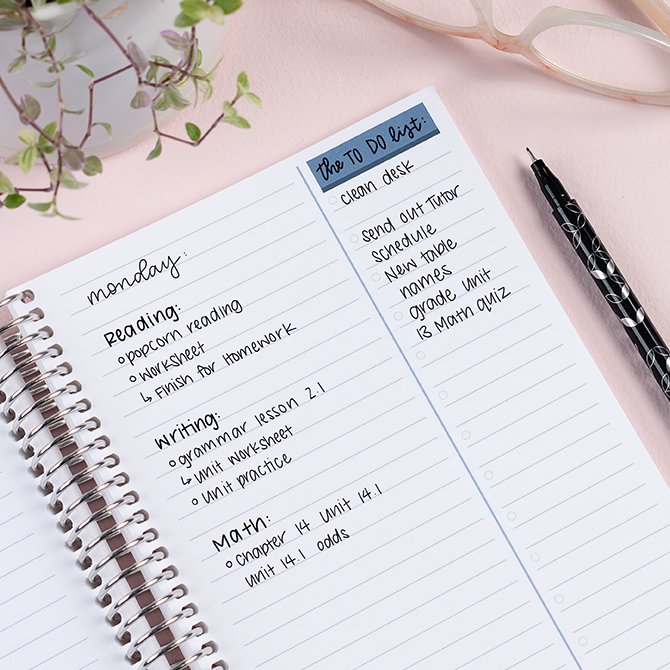 monday:
Reading:
popcorn reading
worksheet
↳ Finish for Homework
writing:
grammar lesson 2.1
↳ unit worksheet
unit practice
Math:
chapter 14 unit 14.1
unit 14.1 odds
the TO DO list:
clean desk
send out Tutor
schedule
New table
names
grade unit
13 Math quiz